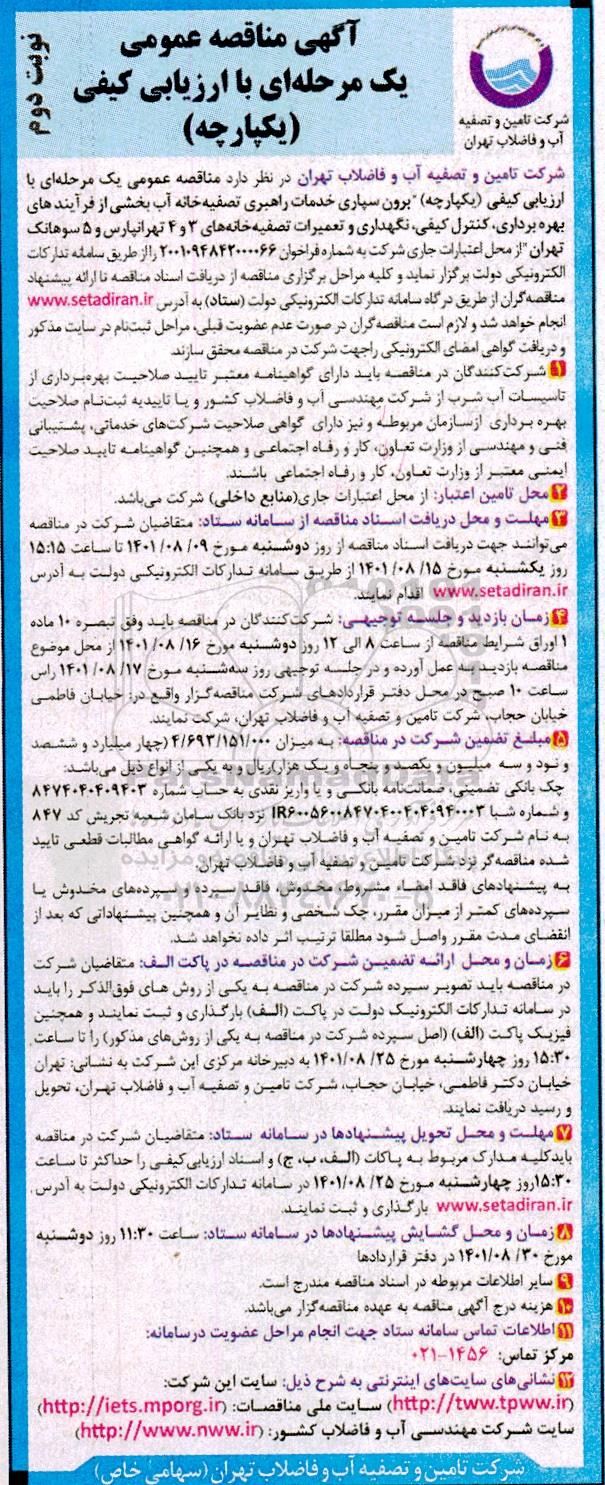 نوبت دوم
آگهی مناقصه عمومی
یک مرحله‌ای با ارزیابی کیفی
(یکپارچه)
شرکت تامین و تصفیه
آب و فاضلاب تهران
شرکت تامین و تصفیه آب و فاضلاب تهران در نظر دارد مناقصه عمومی یک مرحله‌ای با
ارزیابی کیفی (یکپارچه) "برون سپاری خدمات راهبری تصفیه‌خانه آب بخشی از فرآیندهای
بهره برداری، کنترل کیفی، نگهداری و تعمیرات تصفیه‌خانه‌های ۳ و ۴ تهرانپارس و ۵ سوهانک
تهران "از محل اعتبارات جاری شرکت به شماره فراخوان ۲۰۰۱۰۹۴۸۴۲۰۰۰۰۶۶ را از طریق سامانه تدارکات
الکترونیکی دولت برگزار نماید و کلیه مراحل برگزاری مناقصه از دریافت اسناد مناقصه تا ارائه پیشنهاد
مناقصه‌گران از طریق درگاه سامانه تدارکات الکترونیکی دولت (ستاد) به آدرس www.setadiran.ir
انجام خواهد شد و لازم است مناقصه‌گران در صورت عدم عضویت قبلی، مراحل ثبت‌نام در سایت مذکور
و دریافت گواهی امضای الکترونیکی را جهت شرکت در مناقصه محقق سازند.
۱ شرکت‌کنندگان در مناقصه باید دارای گواهینامه معتبر تایید صلاحیت بهره‌برداری از
تاسیسات آب شرب از شرکت مهندسی آب و فاضلاب کشور و یا تاییدیه ثبت‌نام صلاحیت
بهره برداری ازسازمان مربوطه و نیز دارای گواهی صلاحیت شرکت‌های خدماتی، پشتیبانی
فنی و مهندسی از وزارت تعاون، کار و رفاه اجتماعی و همچنین گواهینامه تایید صلاحیت
ایمنی معتبر از وزارت تعاون، کار و رفاه اجتماعی باشند.
۲ محل تامین اعتبار: از محل اعتبارات جاری(منابع داخلی) شرکت می‌باشد.
۳ مهلت و محل دریافت اسناد مناقصه از سامانه ستاد: متقاضیان شرکت در مناقصه
می‌توانند جهت دریافت اسناد مناقصه از روز دوشنبه مورخ ۰۹/ ۰۸/ ۱۴۰۱ تا ساعت ۱۵:۱۵
روز یکشنبه مورخ ۱۵/ ۰۸/ ۱۴۰۱ از طریق سامانه تدارکات الکترونیکی دولت به آدرس
www.setadiran.ir اقدام نمایند.
۴ زمان بازدید و جلسه توجیهی: شرکت‌کنندگان در مناقصه باید وفق تبصره ۱۰ ماده
۱ اوراق شرایط مناقصه از ساعت ۸ الی ۱۲ روز دوشنبه مورخ ۱۶/ ۰۸/ ۱۴۰۱ از محل موضوع
مناقصه بازدید به عمل آورده و در جلسه توجیهی روز سه‌شنبه مورخ ۱۷/ ۰۸/ ۱۴۰۱ راس
ساعت ۱۰ صبح در محل دفتر قراردادهای شرکت مناقصه‌گزار واقع در: خیابان فاطمی
خیابان حجاب، شرکت تامین و تصفیه آب و فاضلاب تهران، شرکت نمایند.
۵ مبلغ تضمین شرکت در مناقصه: به میزان ۴/۶۹۳/۱۵۱/۰۰۰ (چهار میلیارد و ششصد
و نود و سه میلیون و یکصد و پنجاه و یک هزار)ریال و به یکی از انواع ذیل می‌باشد:
چک بانکی تضمینی، ضمانت‌نامه بانکی و یا واریز نقدی به حساب شماره ۸۴۷۴۰۴۰۴۰۹۴۰۳
و شماره شبا نزد بانک سامان شعبه تجریش کد ۸۴۷
به نام شرکت تامین و تصفیه آب و فاضلاب تهران و یا ارائه گواهی مطالبات قطعی تایید
شده مناقصه‌گر نزد شرکت تامین و تصفیه آب و فاضلاب تهران.
به پیشنهادهای فاقد امضاء، مشروط، مخدوش، فاقد سپرده و سپرده‌های مخدوش یا
سپرده‌های کمتر از میزان مقرر، چک شخصی و نظایر آن و همچنین پیشنهاداتی که بعد از
انقضای مدت مقرر واصل شود مطلقا ترتیب اثر داده نخواهد شد.
۶ زمان و محل ارائه تضمین شرکت در مناقصه در پاکت الف: متقاضیان شرکت
در مناقصه باید تصویر سپرده شرکت در مناقصه به یکی از روش های فوق‌الذکر را باید
در سامانه تدارکات الکترونیک دولت در پاکت (الف) بارگذاری و ثبت نمایند و همچنین
فیزیک پاکت (الف) (اصل سپرده شرکت در مناقصه به یکی از روش‌های مذکور) را تا ساعت
۱۵:۳۰ روز چهارشنبه مورخ ۲۵/ ۱۴۰۱/۰۸ به دبیرخانه مرکزی این شرکت به نشانی: تهران
خیابان دکتر فاطمی، خیابان حجاب، شرکت تامین و تصفیه آب و فاضلاب تهران، تحویل
و رسید دریافت نمایند.
۷ مهلت و محل تحویل پیشنهادها در سامانه ستاد: متقاضیان شرکت در مناقصه
بایدکلیه مدارک مربوط به پاکات (الف، ب، ج) و اسناد ارزیابی‌کیفی را حداکثر تا ساعت
۱۵:۳۰روز چهارشنبه مورخ ۲۵/ ۱۴۰۱/۰۸ در سامانه تدارکات الکترونیکی دولت به آدرس
www.setadiran.ir بارگذاری و ثبت نمایند.
۸ زمان و محل گشایش پیشنهادها در سامانه ستاد: ساعت ۱۱:۳۰ روز دوشنبه
مورخ ۳۰/ ۱۴۰۱/۰۸ در دفتر قراردادها
۹ سایر اطلاعات مربوطه در اسناد مناقصه مندرج است.
۱۰ هزینه درج آگهی مناقصه به عهده مناقصه‌گزار می‌باشد.
۱۱ اطلاعات تماس سامانه ستاد جهت انجام مراحل عضویت درسامانه:
مرکز تماس: ۱۴۵۶-۰۲۱
۱۲ نشانی‌های سایت‌های اینترنتی به شرح ذیل: سایت این شرکت:
(http://tww.tpww.ir) سایت ملی مناقصات: (http://iets.mporg.ir)
سایت شرکت مهندسی آب و فاضلاب کشور: (http://www.nww.ir)
شرکت تامین و تصفیه آب و فاضلاب تهران (سهامی خاص)